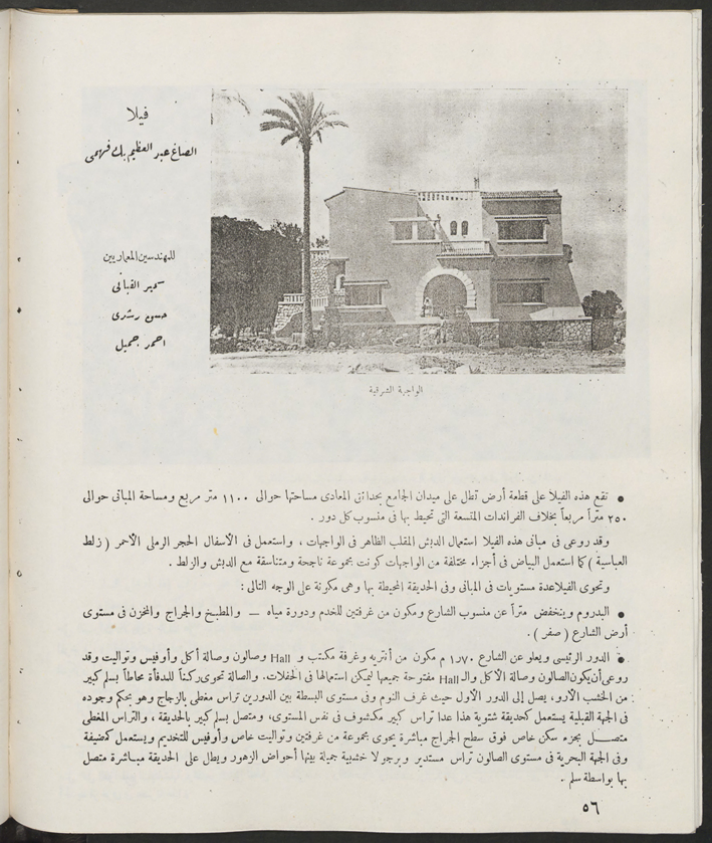 فيلا
الصاغ عبد العظيم بك فهمى
للمهندسين المعماريين
سمير القبانى
حسن رشدى
احمد جميل
الواجهة الشرقية
● تقع هذه الفيلا على قطعة أرض تطل على ميدان الجامع بحدائق المعادى مساحتها حوالى ١١٠٠ متر مربع ومساحة المبانى حوالى
٢٥٠ متراً مربعاً بخلاف الفراندات المتسعة التى تحيط بها فى منسوب كل دور .
وقد روعى فى مبانى هذه الفيلا استعمال الدبش المقلب الظاهر فى الواجهات ، واستعمل فى الأسفال الحجر الرملى الأحمر ( زلط
العباسية ) كما استعمل البياض فى أجزاء مختلفة من الواجهات كونت مجموعة ناجحة ومتناسقة مع الدبش والزلط .
وتحوى الفيلا عدة مستويات فى المبانى وفى الحديقة المحيطة بها وهى مكونة على الوجه التالى :
● البدروم وينخفض متراً عن منسوب الشارع ومكون من غرفتين للخدم ودورة مياه — والمطبخ والجراج والمخزن فى مستوى
أرض الشارع ( صفر ) .
● الدور الرئيسى ويعلو عن الشارع ١٫٧٠ م مكون من أنتريه وغرفة مكتب و Hall وصالون وصالة أكل وأوفيس وتواليت وقد
روعى أن يكون الصالون وصالة الأكل والـ Hall مفتوحة جميعها ليمكن استعمالها فى الحفلات. والصالة تحوى ركناً للمدفأة محاطاً بسلم كبير
من الخشب الأرو، يصل إلى الدور الأول حيث غرف النوم وفى مستوى البسطة بين الدورين تراس مغطى بالزجاج وهو بحكم وجوده
فى الجهة القبلية يستعمل كحديقة شتوية هذا عدا تراس كبير مكشوف فى نفس المستوى، ومتصل بسلم كبير بالحديقة ، والتراس المغطى
متصــل بجزء سكن خاص فوق سطح الجراج مباشرة يحوى مجموعة من غرفتين وتواليت خاص وأوفيس للتخديم ويستعمل كمضيفة
وفى الجهة البحرية فى مستوى الصالون تراس مستدير وبرجولا خشبية جميلة بينها أحواض الزهور ويطل على الحديقة مبـاشرة متصل
بها بواسطة سلم .
٥٦